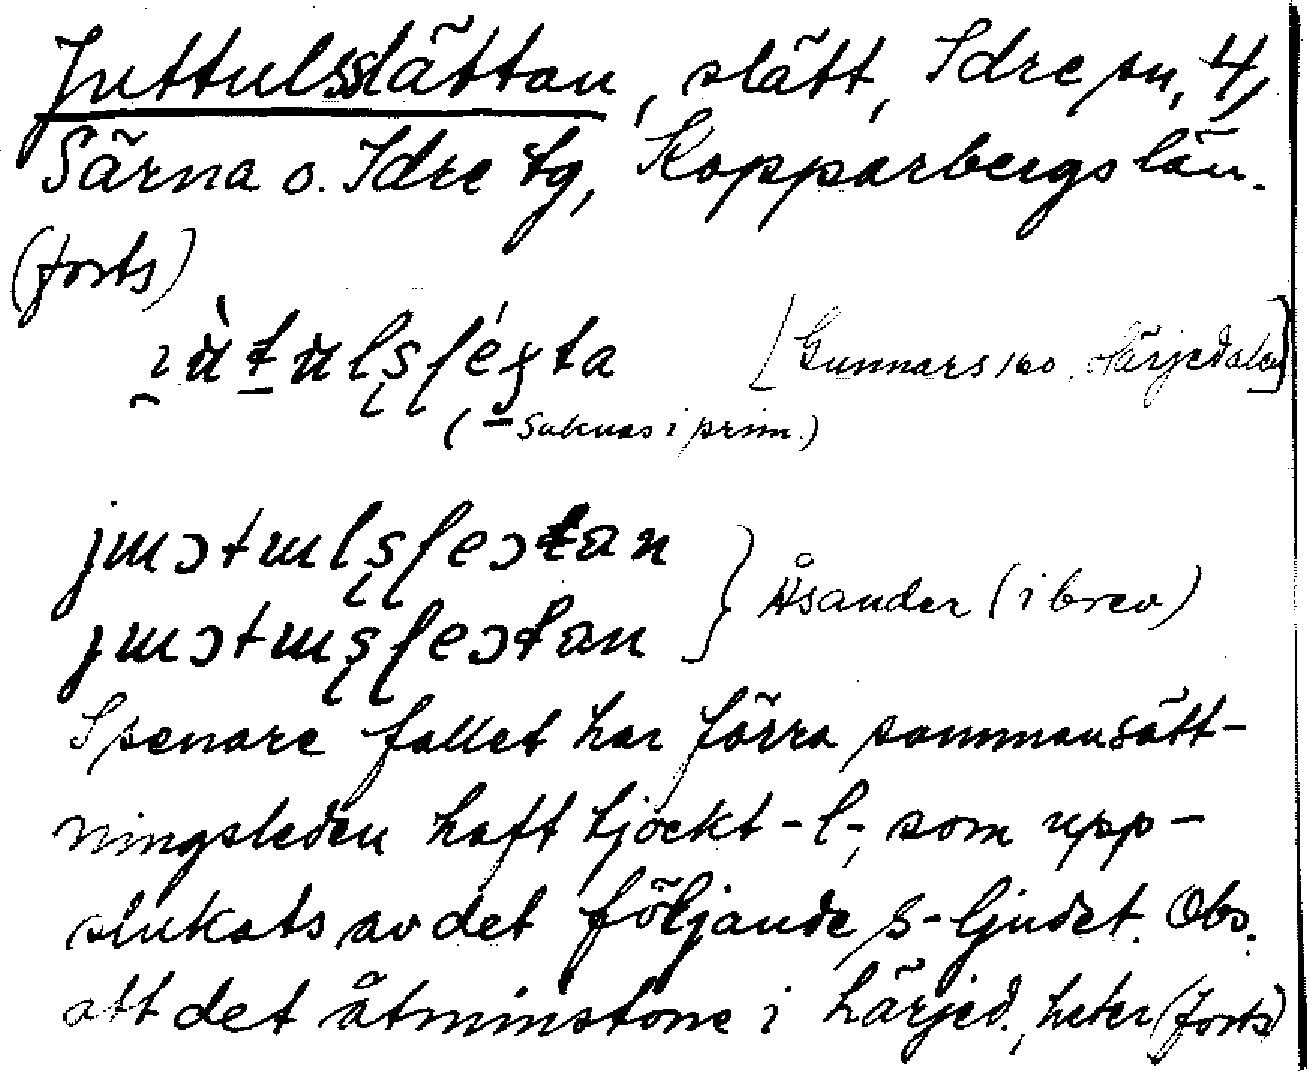 Juttulsslättan, slätt, Idre sn, 4,
Särna o. Idre tg, Kopparbergs län.
(forts)
[Gunnars 160. Härjedalen]
(– saknas i prim.)
Åsander (i brev)
I senare fallet har förra sammansätt-
ningsleden haft tjockt -l-, som upp-
slukats av det följande s-ljudet. Obs.
att det åtminstone i härjed., heter (forts)